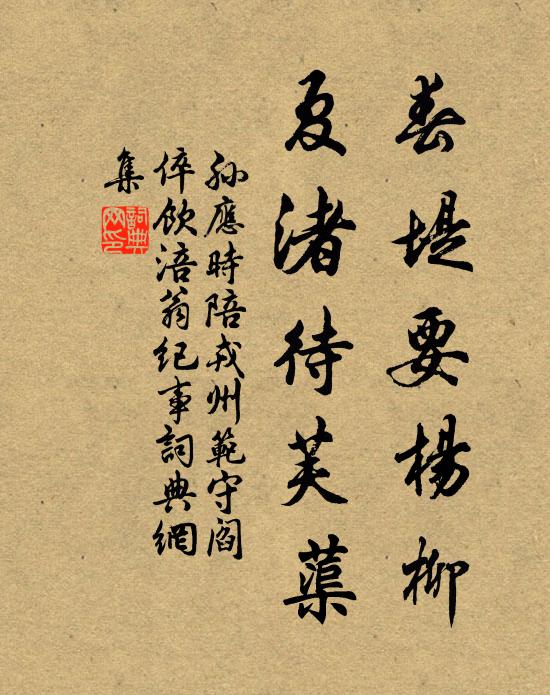 春堤要楊柳
夏渚待芙蕖
孫應時陪戎州範守閻
倅飲涪翁紀事詞典網
集
詞典
网印